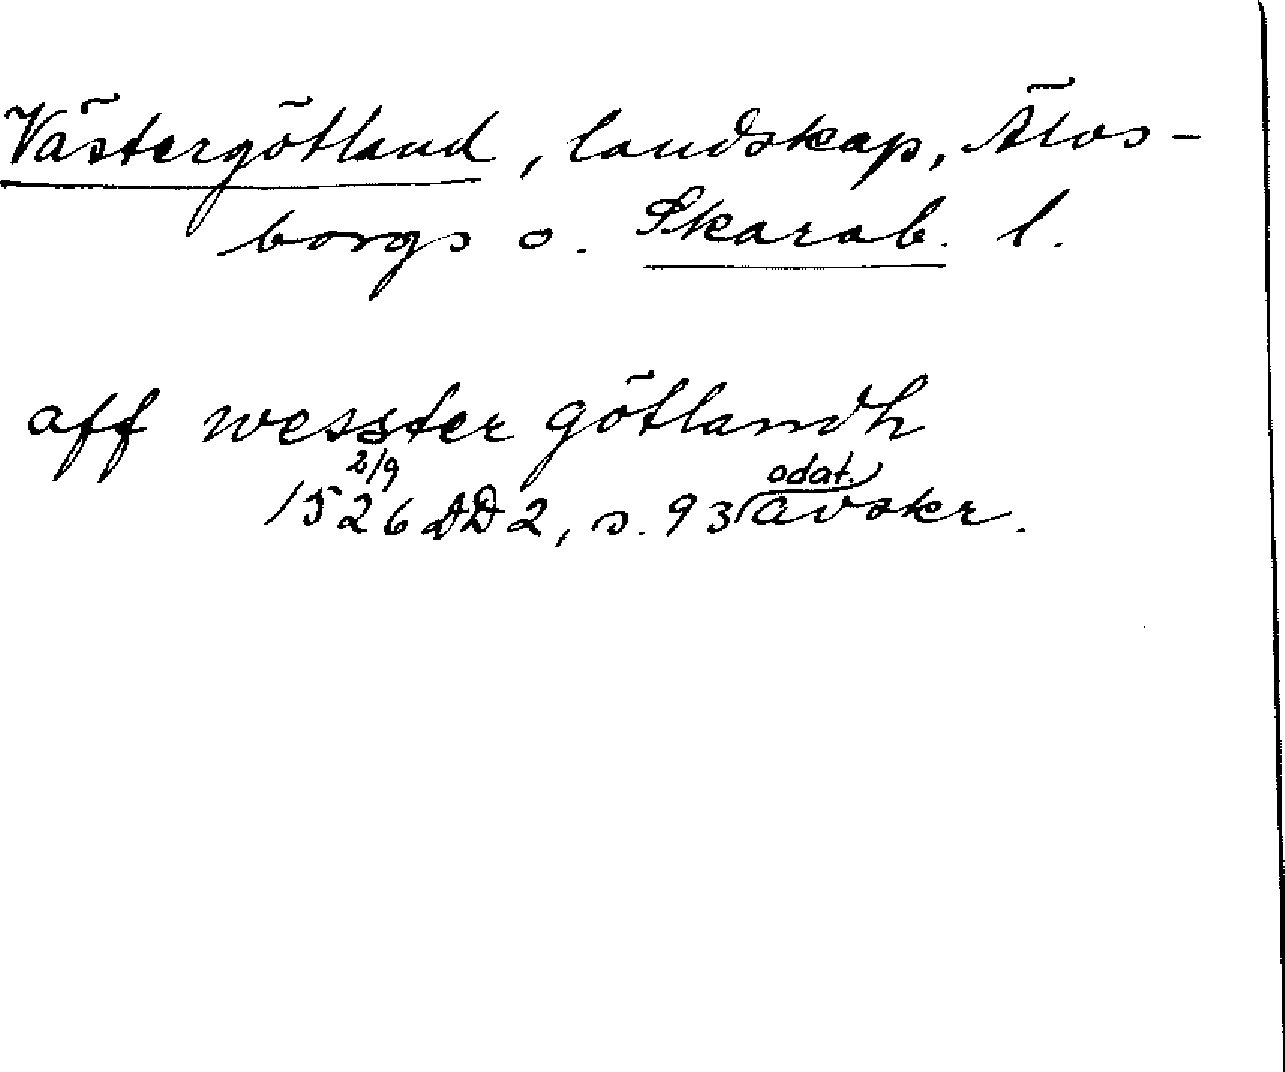 Västergötland, landskap, Älvs-
borgs o. Skarab. l.
aff wesster götlandh
2/9 odat.
1526 DD2, s. 93 avskr.